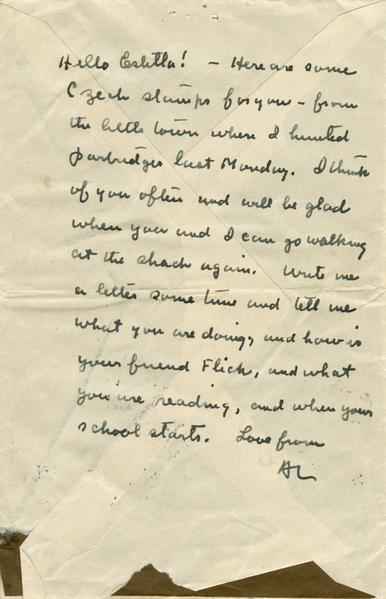 Hello Estella! - Here are some
Czech stamps for you - from
the little town where I hunted
partridges last Monday. I think
of you often and will be glad
when you and I can go walking
at the shack again. Write me
a letter some time and tell me
what you are doing, and how is
your friend Flick, and what
you're reading, and when your
school starts. Love from
AL